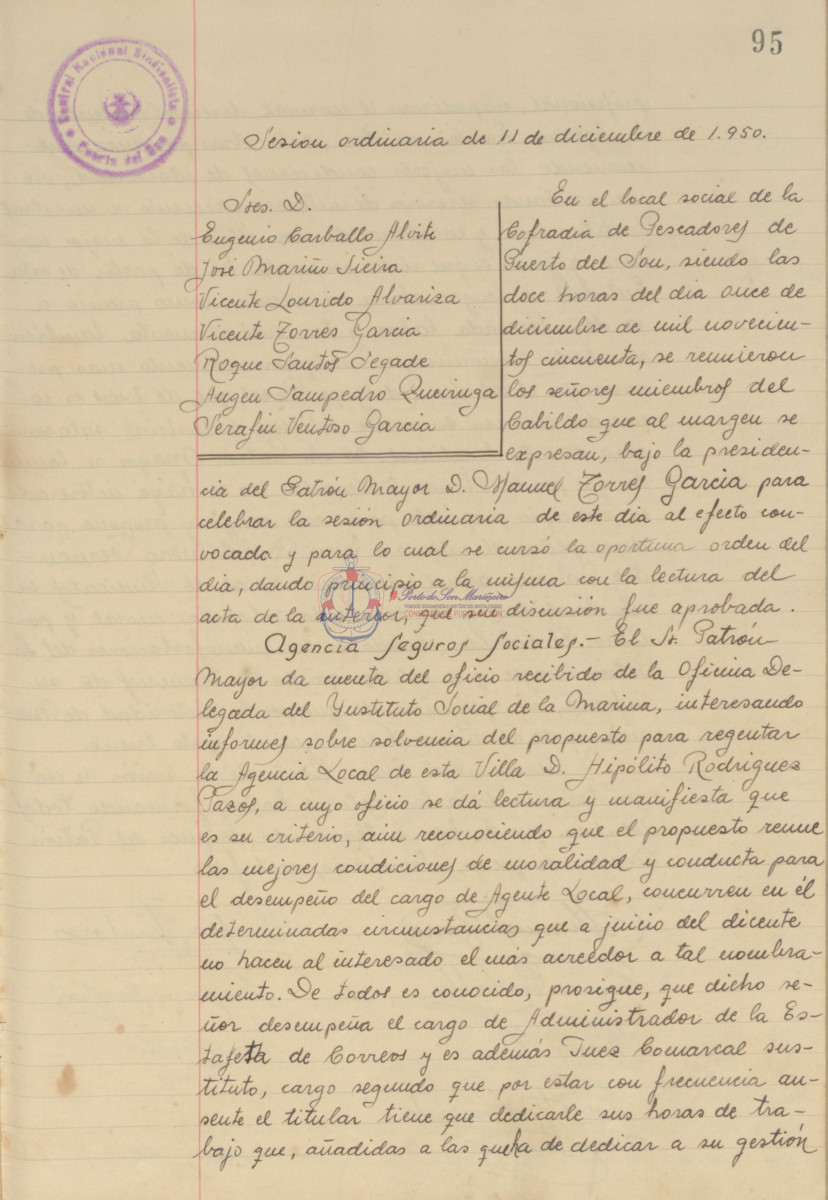 95
Central Nacional Sindicalista
Puerto del Son
Sesion ordinaria de 11 de diciembre de 1.950.
Sres. D.
Eugenio Carballo Alvite
José Mariño Sieira
Vicente Lourido Alvariza
Vicente Torres Garcia
Roque Santos Segade
Angen Sampedro Queiruga
Serafin Ventoso Garcia
En el local social de la
Cofradia de Pescadores de
Puerto del Son, siendo las
doce horas del dia once de
diciembre de mil novecien-
tos cincuenta, se reunieron
los señores miembros del
Cabildo que al margen se
expresan, bajo la presiden-
cia del Patrón Mayor D. Manuel Torres Garcia para
celebrar la sesión ordinaria de este dia al efecto con-
vocada y para lo cual se cursó la oportuna orden del
dia, dando principio a la misma con la lectura del
acta de la anterior, que sin discusión fue aprobada.
Porto do Son Mariñeiro
Agencia Seguros Sociales.- El Sr. Patrón
Mayor da cuenta del oficio recibido de la Oficina De-
legada del Ynstituto Social de la Marina, interesando
informes sobre solvencia del propuesto para regentar
la Agencia Local de esta Villa D. Hipólito Rodriguez
Pazos, a cuyo oficio se dá lectura y manifiesta que
es su criterio, aún reconociendo que el propuesto reune
las mejores condiciones de moralidad y conducta para
el desempeño del cargo de Agente Local, concurren en él
determinadas circunstancias que a juicio del dicente
no hacen al interesado el más acreedor a tal nombra-
miento. De todos es conocido, prosigue, que dicho se-
ñor desempeña el cargo de Administrador de la Es-
tafeta de Correos y es además Juez Comarcal sus-
tituto, cargo segundo que por estar con frecuencia au-
sente el titular tiene que dedicarle sus horas de tra-
bajo que, añadidas a las que ha de dedicar a su gestión